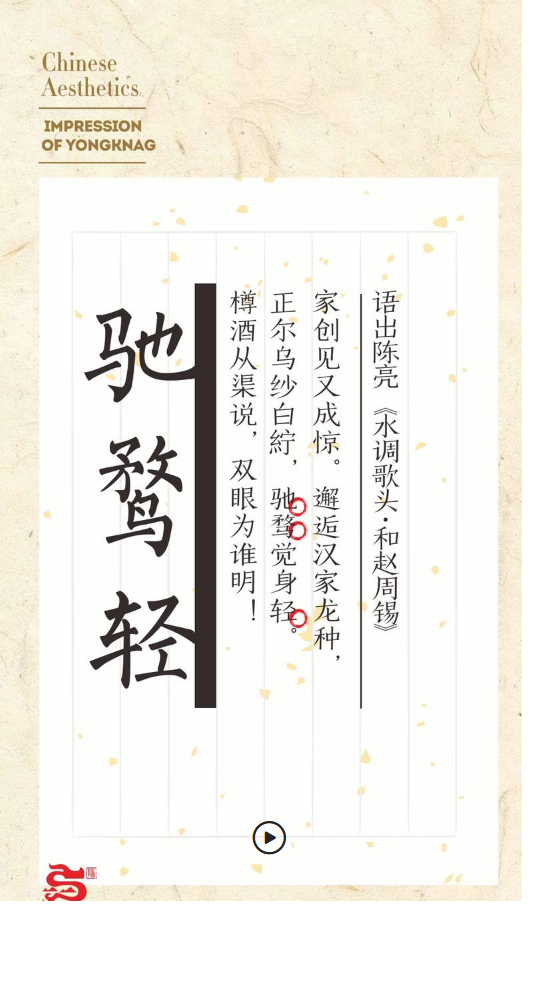 Chinese
Aesthetics
IMPRESSION
OF YONGKNAG
语出陈亮《水调歌头·和赵周锡》
家创见又成惊。邂逅汉家龙种，
正尔乌纱白紵，驰骛觉身轻。
樽酒从渠说，双眼为谁明！
驰骛轻